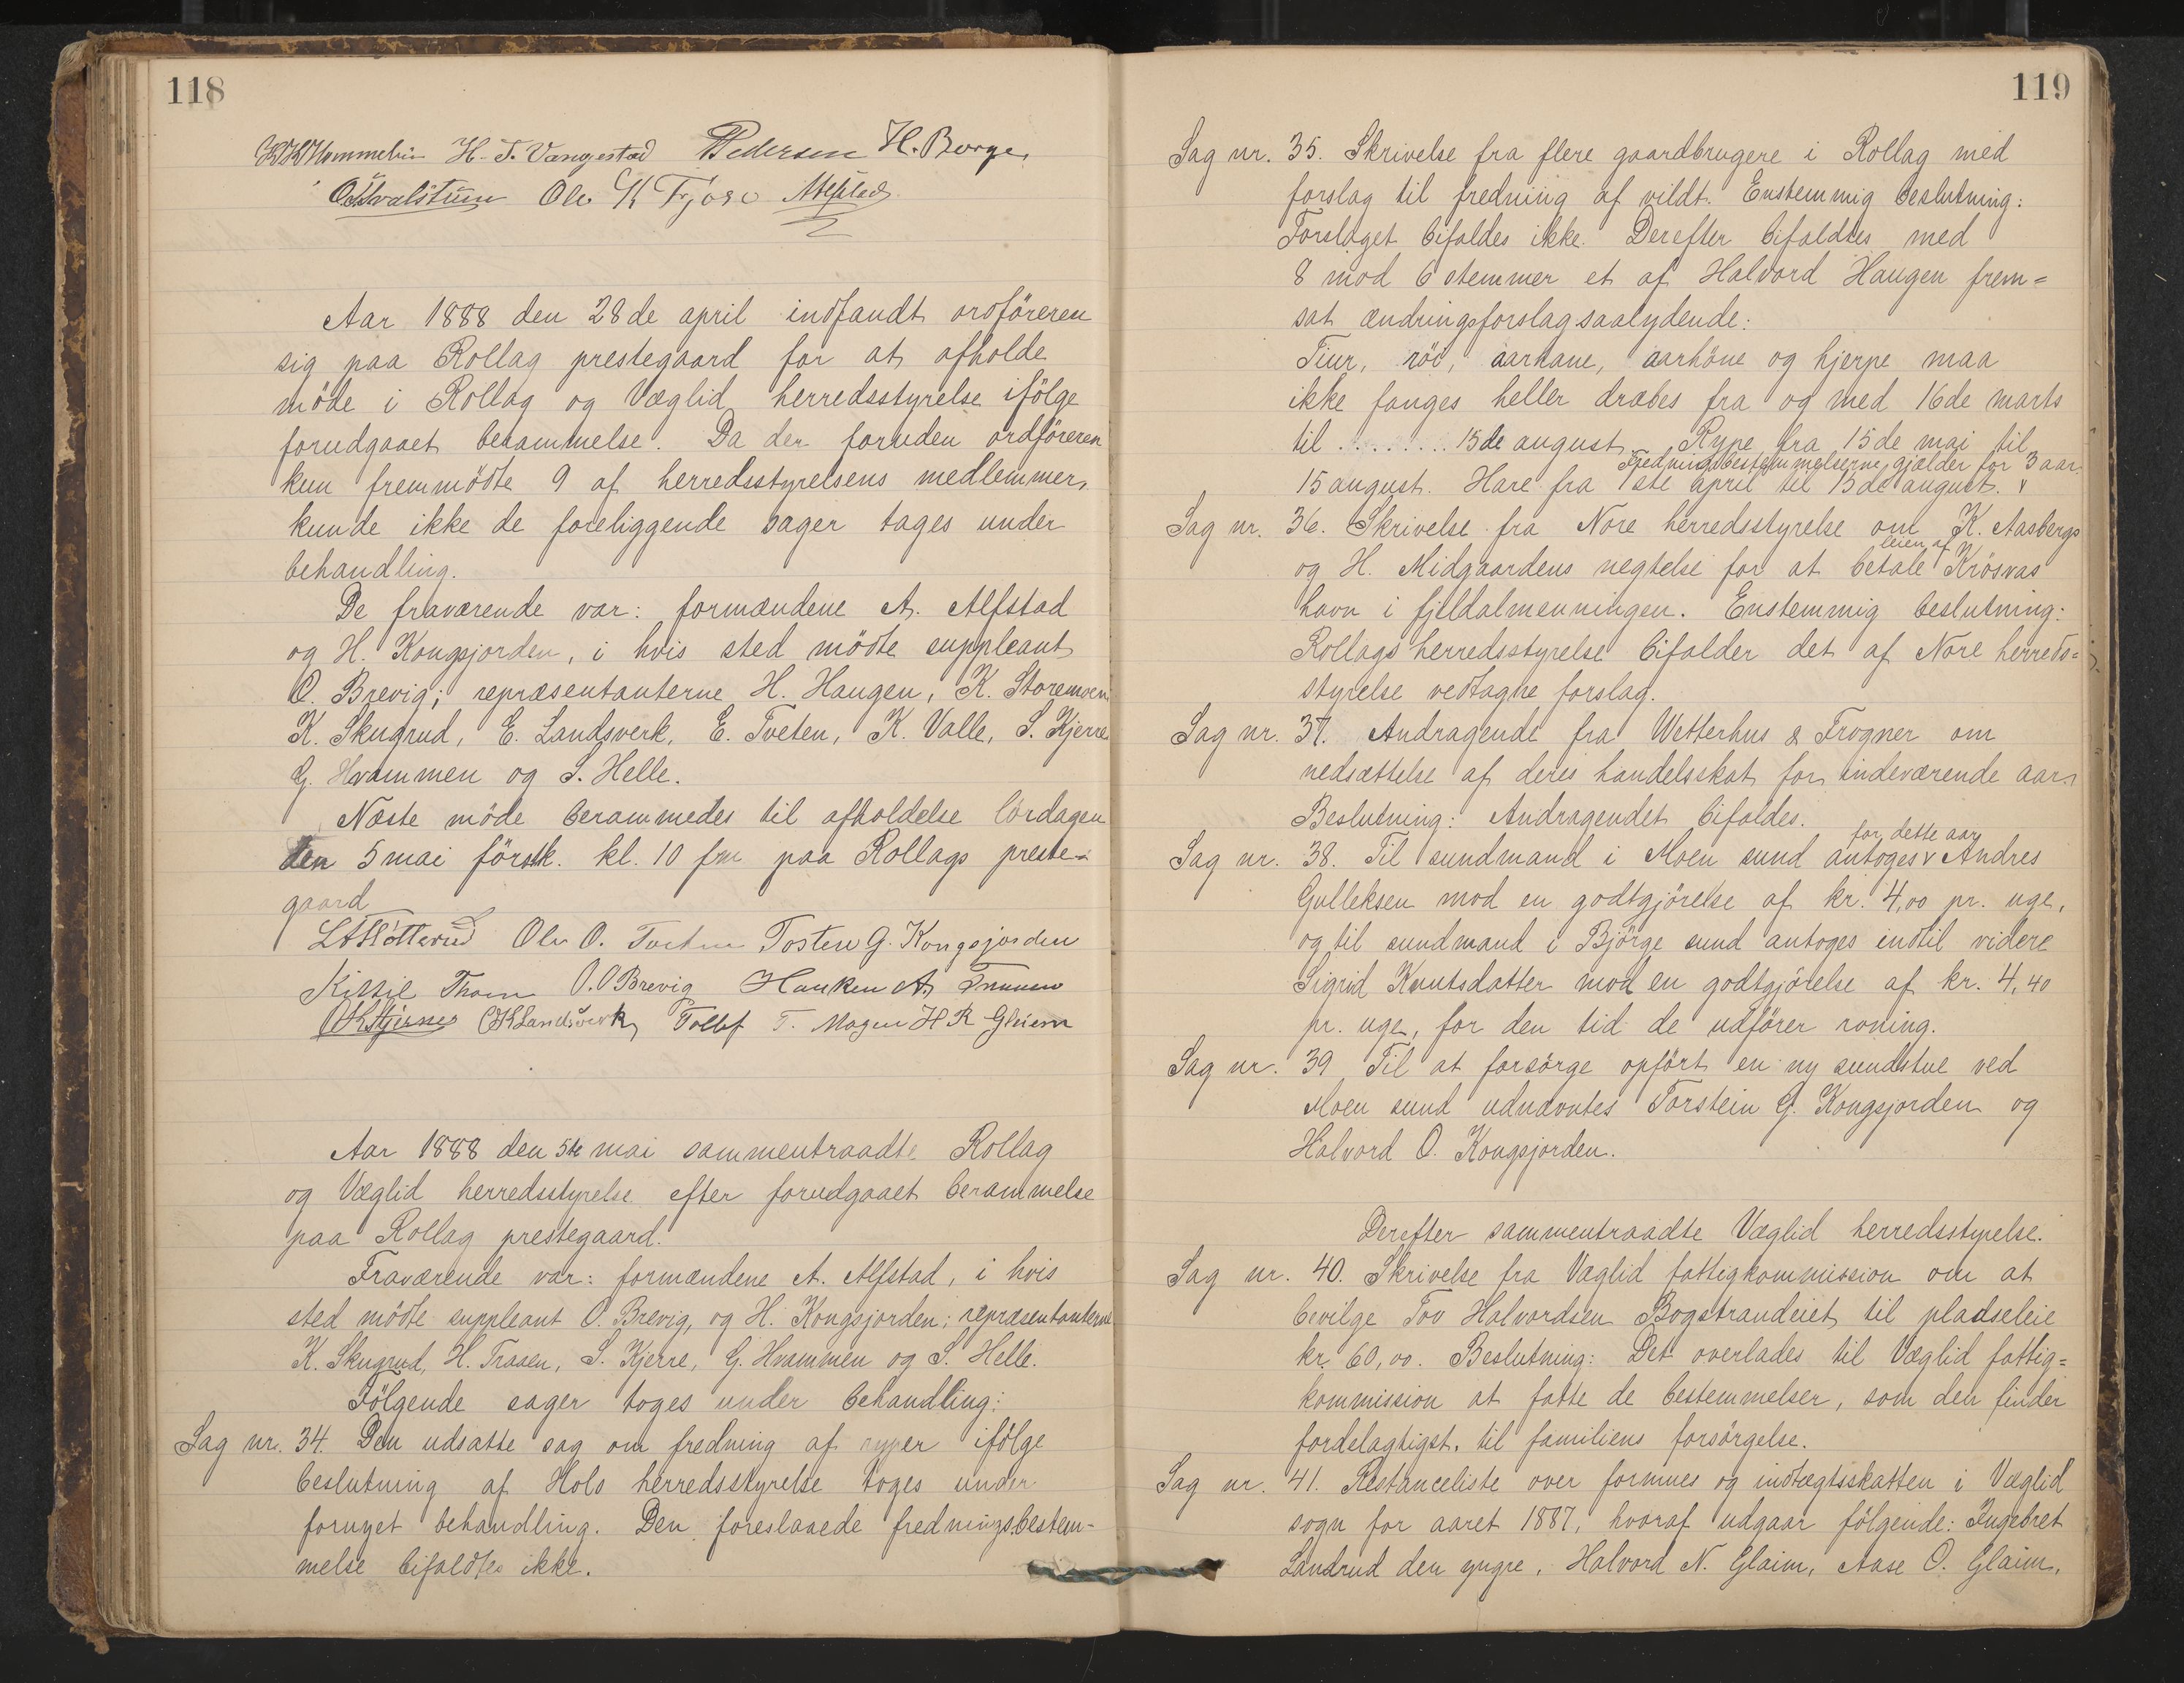 118
H. T. Vangestad Pedersen H. Borge,
Ole K Fjose Alfstad
Aar 1888 den 28de april indfandt ordföreren
sig paa Rollag prestegaard for at afholde
möde i Rollag og Væglid herredsstyrelse ifölge
forudgaaet berammelse. Da der foruden ordföreren
kun fremmödte 9 af herredsstyrelsens medlemmer,
kunde ikke de foreliggende sager tages under
behandling.
De fraværende var: formændene A. Alfstad
og H. Kongsjorden, i hvis sted mödte suppleant
O. Brevig; repræsentanterne H. Haugen, K. Storemoen
K. Skugrud, E. Landsverk, E. Tveten, K. Valle, S. Kjerre
G. Hvammen og S. Helle.
Næste möde berammedes til afholdelse lördagen
den 5 mai förstk. kl. 10 fm paa Rollags preste-
gaard
Ole O. Tveten Tosten G. Kongsjorden
Kittil Thoen O. O Brevig Haaken A.
Landsverk Tollef T. Mogen H K Glaim
Aar 1888 den 5te mai sammentraadte Rollag
og Væglid herredsstyrelse efter forudgaaet berammelse
paa Rollag prestegaard.
Fraværende var: formændene A. Alfstad, i hvis
sted mödte suppleant O. Brevig, og H. Kongsjorden; repræsentanterne
K. Skugrud, H. Traaen, S. Kjerre, G. Hvammen og S. Helle.
Fölgende sager toges under behandling:
Sag nr. 34. Den udsatte sag om fredning af ryper ifölge
beslutning af Hols herredsstyrelse toges under
fornyet behandling. Den foreslaaede fredningsbestem-
melse bifaldtes ikke.
119
Sag nr. 35. Skrivelse fra flere gaardbrugere i Rollag med
forslag til fredning af vildt. Enstemmig beslutning:
Forslaget bifaldes ikke. Derefter bifaldtes med
8 mod 6 stemmer et af Halvord Haugen frem=
sat ændringsforslag saalydende:
Tiur, röi, aarhane, aarhöne og hjerpe maa
ikke fanges heller dræbes fra og med 16de marts
til ......... 15de august. Rype fra 15de mai til
Fredningsbestemmelserne gjælder for 3 aar.
15 august. Hare fra 1ste april til 15de august. v
Sag nr. 36. Skrivelse fra Nore herredsstyrelse om K. Aasbergs
leien af
og H. Midgaardens negtelse for at betale Krösvas
havn i fjeldalmenningen. Enstemmig beslutning:
Rollags herredsstyrelse bifalder det af Nore herreds=
styrelse vedtagne forslag.
Sag nr. 37. Andragende fra Wetterhus & Frogner om
nedsættelse af deres handelsskat for indeværende aar.
Beslutning: Andragendet bifaldes.
for dette aar
Sag nr. 38. Til sundmand i Moen sund antoges v Andres
Gulleksen mod en godtgjörelse af kr. 4,00 pr. uge,
og til sundmand i Björge sund antoges indtil videre
Sigrid Knutsdatter mod en godtgjörelse af kr. 4,40
pr. uge, for den tid de udförer roning.
Sag nr. 39 Til at forsörge opfört en ny sundstue ved
Moen sund udnævntes Torstein G. Kongsjorden og
Halvord O. Kongsjorden.
Derefter sammentraadte Væglid herredsstyrelse.
Sag nr. 40. Skrivelse fra Væglid fattigkommission om at
bevilge Tov Halvordsen Bogstrandeiet til pladseleie
kr. 60,00. Beslutning: Det overlades til Væglid fattig=
kommission at fatte de bestemmelser, som den finder
fordelagtigst, til familiens forsörgelse.
Sag nr. 41. Restanceliste over formues og indtægtsskatten i Væglid
sogn for aaret 1887, hvoraf udgaar fölgende: Ingebret
Landrud den yngre, Halvord N. Glaim, Aase O. Glaim,